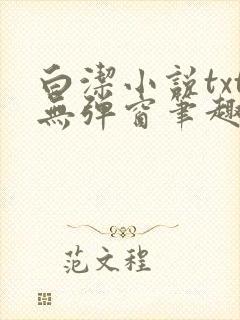 白潔小說txt
無彈窗筆趣
范文程